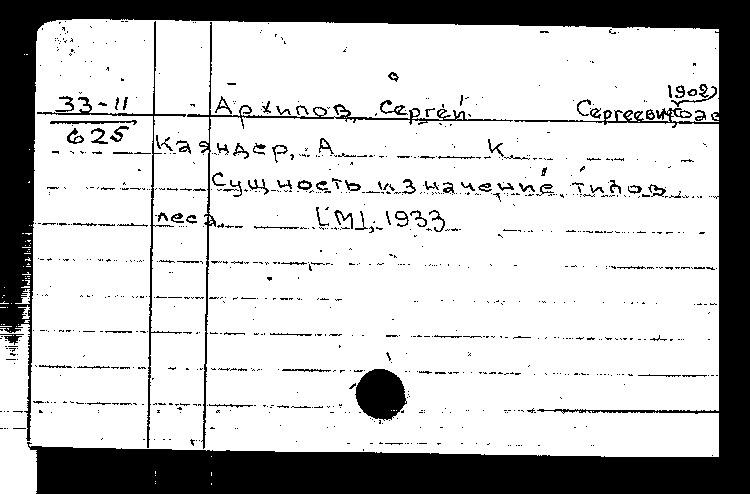 1902)
33-11 Архипов, Сергей Сергеевич,
625
Каяндер, А. К.
Сущность и значение типов
леса. [М], 1933